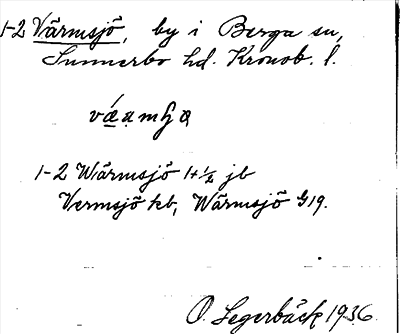 1-2 Värmsjö, by i Berga sn,
Sunnerbo hd. Kronob. l.
1-2 Wärmsjö 1+1/2 jb
Vermsjö kb, Wärmsjö G19.
O. Legerbäck 1936